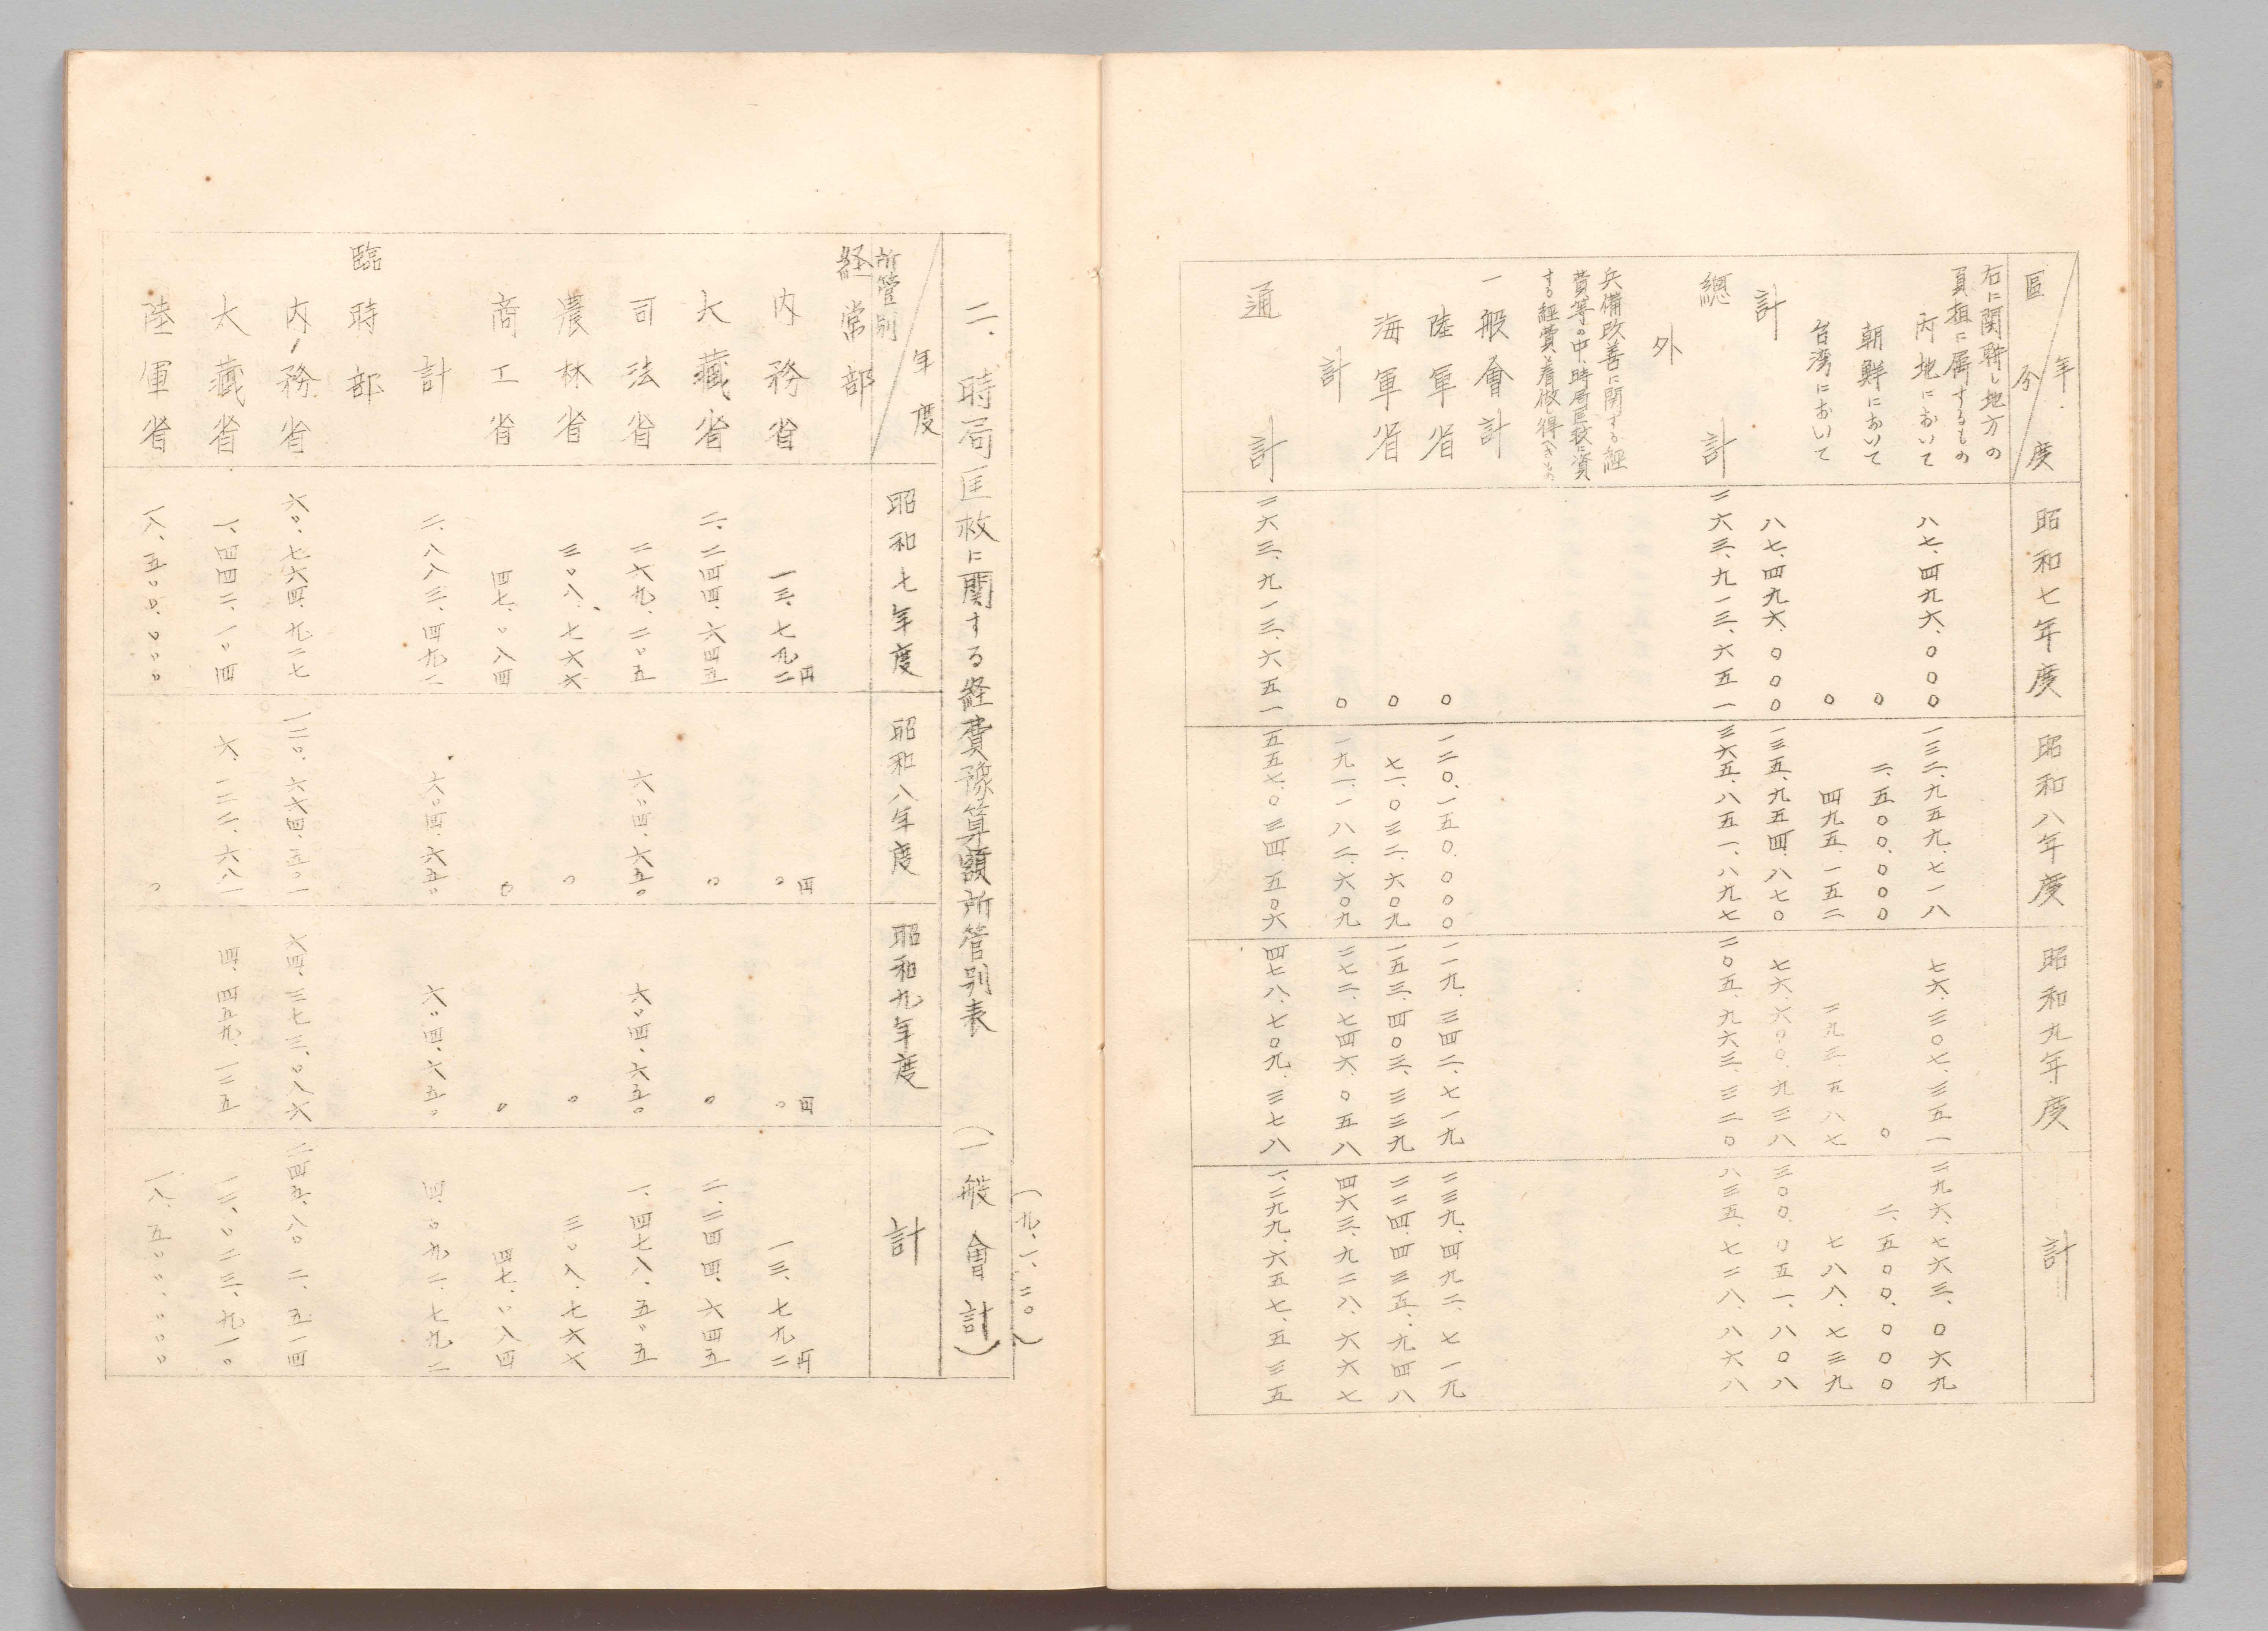 區分 年度
昭和七年度
昭和八年度
昭和九年度
計
右に関聯し地方の
負担に属するもの
内地において
八七、四九六、〇〇〇
一三二、九五九、七一八
七六、三〇七、三五一
二九六、七六三、〇六九
朝鮮において
〇
二、五〇〇、〇〇〇
〇
二、五〇〇、〇〇〇
台湾において
〇
四九五、一五二
二九三、五八七
七八八、七三九
計
八七、四九六、〇〇〇
一三五、九五四、八七〇
七六、六〇〇、九三八
三〇〇、〇五一、八〇八
總計
二六三、九一三、六五一
三六五、八五一、八九七
二〇五、九六三、三二〇
八三五、七二八、八六八
外
兵備改善に関する経
費等の中、時局匡救に資
する経費と看做し得べきもの
一般會計
陸軍省
〇
一二〇、一五〇、〇〇〇
一一九、三四二、七一九
二三九、四九二、七一九
海軍省
〇
七一、〇三二、六〇九
一五三、四〇三、三三九
二二四、四三五、九四八
計
〇
一九一、一八二、六〇九
二七二、七四六、〇五八
四六三、九二八、六六七
通計
二六三、九一三、六五一
五五七、〇三四、五〇六
四七八、七〇九、三七八
一、二九九、六五七、五三五
(九、一、二〇)
二、時局匡救に関する経費豫算額所管別表 (一般會計)
所管別 年度
昭和七年度
昭和八年度
昭和九年度
計
経常部
内務省
一三、七九二円
〇円
〇円
一三、七九二円
大藏省
二、二四四、六四五
〇
〇
二、二四四、六四五
司法省
二六九、二〇五
六〇四、六五〇
六〇四、六五〇
一、四七八、五〇五
農林省
三〇八、七六六
〇
〇
三〇八、七六六
商工省
四七、〇八四
〇
〇
四七、〇八四
計
二、八八三、四九二
六〇四、六五〇
六〇四、六五〇
四、〇九二、七九二
臨時部
内務省
六〇、七六四、九二七
一二〇、六六四、五〇一
六四、三七三、〇八六
二四五、八〇二、五一四
大藏省
一、四四二、一〇四
六、一二二、六八一
四、四五九、一二五
一二、〇二三、九一〇
陸軍省
一八、五〇〇、〇〇〇
〇
一八、五〇〇、〇〇〇